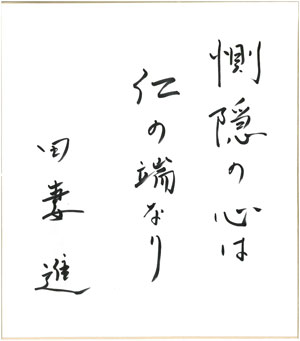 惻隠の心は
仁の端なり
田妻進